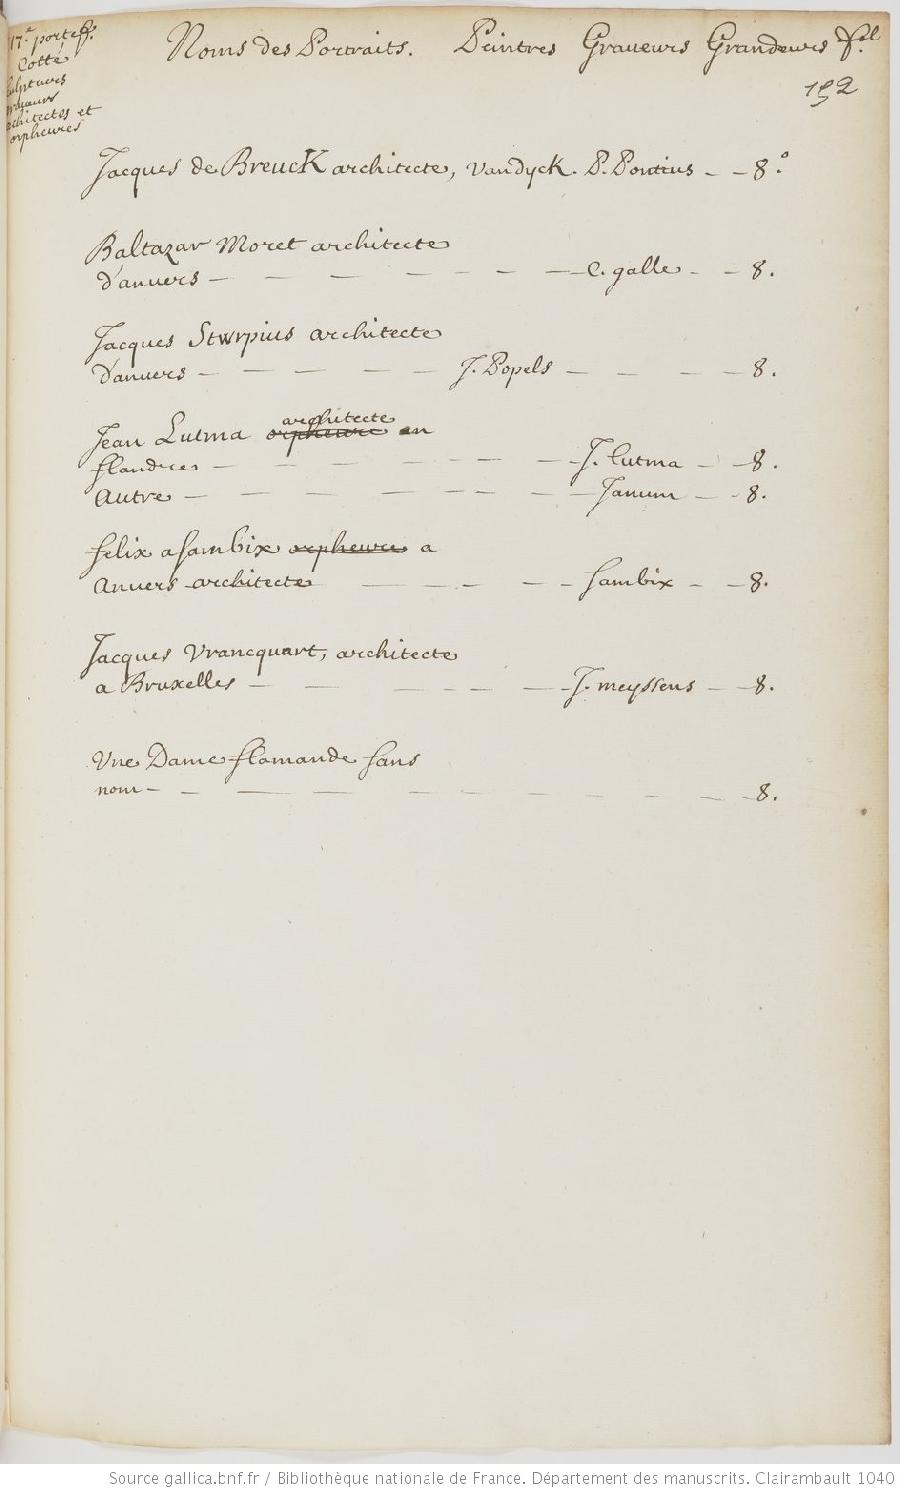 17.e portef.
Cotté
sculpteurs
graveurs
architectes et
orpheures
Noms des Portraits. Peintres Graveurs Grandeurs f.l
152
Jacques de Breuck architecte, Vandyck. P. Pontius - - 8.o
Baltazar Moret architecte
d'anvers - - - - - - - C. galle - - 8.
Jacques Stwrpius architecte
d'anvers - - - - - J. Popels - - - - 8.
architecte
Jean Lutma orpheure en
flandres - - - - - - J. lutma - - 8.
Autre - - - - - - - Janum - - 8.
felix a sambix orpheure a
Anvers architecte - - - - - sambix - - 8.
Jacques Vrancquart, architecte
a Bruxelles - - - - - - J. meyssens - - 8.
Vne Dame flamande sans
nom - - - - - - - - - - - - 8.
Source gallica.bnf.fr / Bibliothèque nationale de France. Département des manuscrits. Clairambault 1040